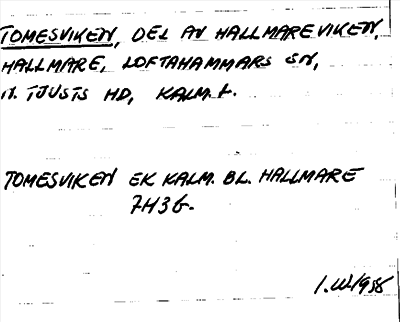 TOMESVIKEN, DEL AV HALLMAREVIKEN,
HALLMARE, LOFTAHAMMARS SN,
N. TJUSTS HD, KALM. L.
TOMESVIKEN EK KALM. BL. HALLMARE
7H3G.